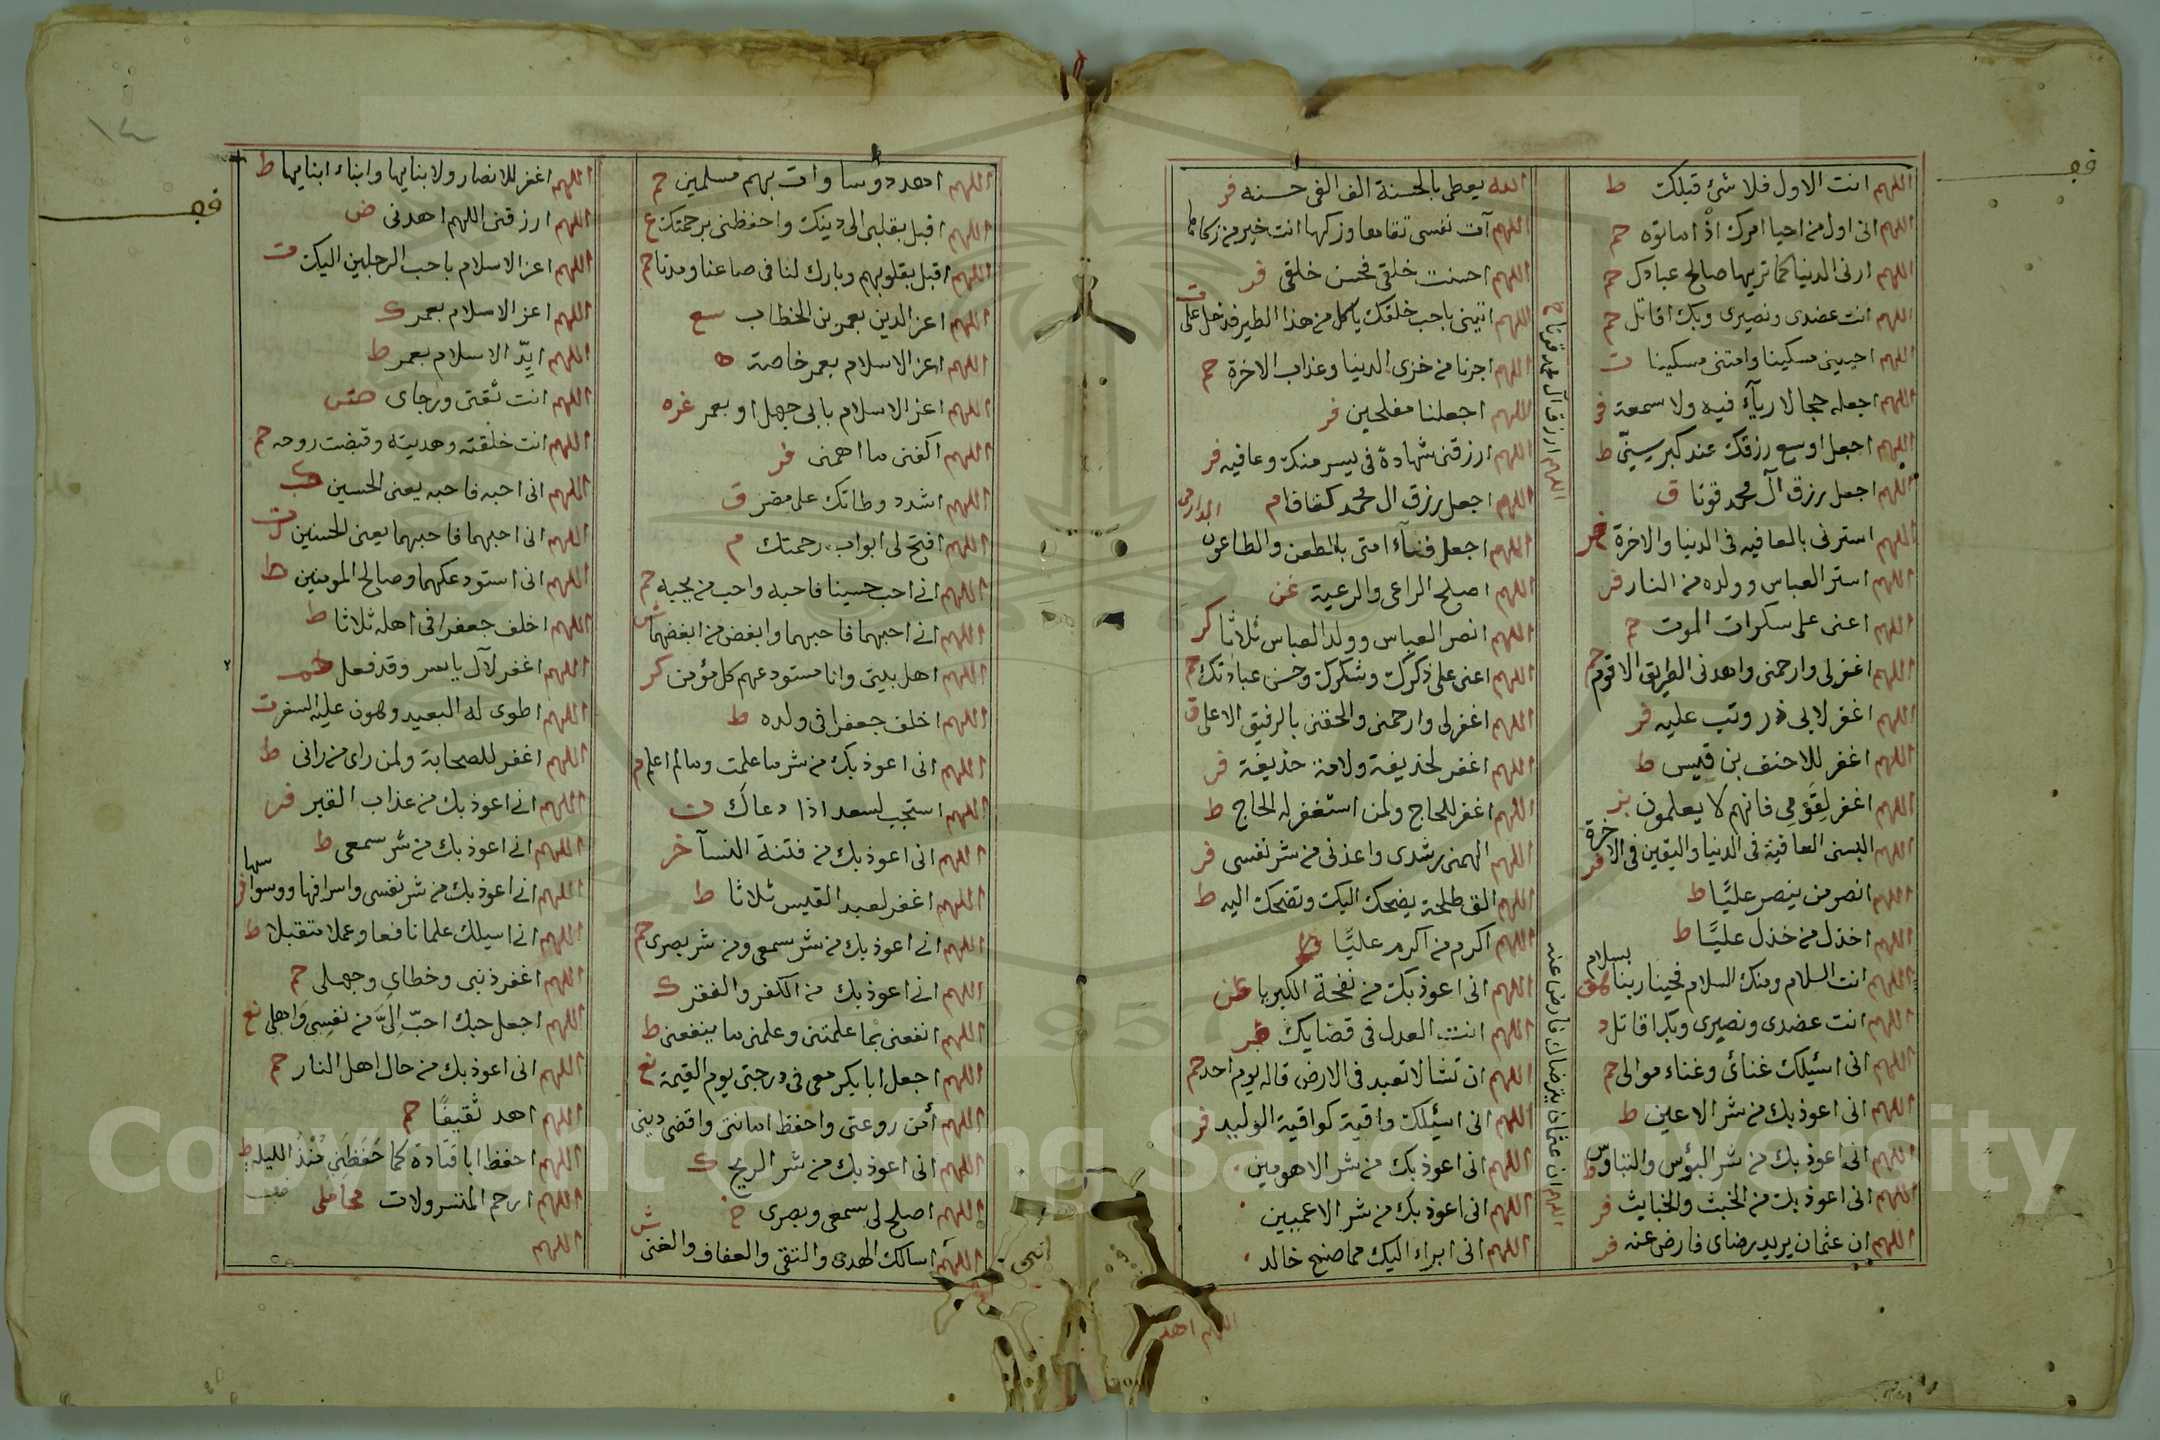 اللهم انت الاول فلا شئ قبلك ط
اللهم انى اول من احيا امرك اذ اماتوه حم
اللهم ارنى الدنيا كما تريها صالح عبادك حم
اللهم انت عضدى ونصيرى وبك اقاتل حم
اللهم احيينى مسكينا وامتنى مسكينا ت
اللهم اجعله حجا لا رياء فيه ولا سمعة فر
اللهم اجعل اوسع رزقك عند كبر سنّى ط
اللهم اجعل رزق آل محمد قوتا ق
اللهم استرنى بالعافيه فى الدنيا والاخرة
اللهم استر العباس وولده من النار فر
اللهم اعنى على سكرات الموت حم
اللهم اغفر لى وارحمنى واهدنى الطريق الاقوم حم
اللهم اغفر لابى ذر وتب عليه فر
اللهم اغفر للاحنف بن قيس ط
اللهم اغفر لقومى فانهم لا يعلمون بز
اللهم البسنى العافية فى الدنيا واليقين فى الاخرة فر
اللهم انصر من ينصر عليًّا ط
اللهم اخذل من خذل عليًّا ط
اللهم انت السلام ومنك السلام فحينا ربنا بسلام
اللهم انت عضدى ونصيرى وبك اقاتل د
اللهم انى اسئيلك غنائى وغناء موالى حم
اللهم انى اعوذ بك من شر الاعين ط
اللهم انى اعوذ بك من شر البؤس والتباوس ط
اللهم انى اعوذ بك من الخبث والخبايث فر
اللهم ان عثمان يريد رضاى فارض عنه فر
اللهم ارزق آل محمد قوتا خ
اللهم ان عثمان يترضاك فارض عنه
الله يعطى بالحسنة الف الفى حسنه فر
اللهم آت نفسى تقاها وزكها انت خير من زكاها
اللهم احسنت خلقى فحسن خلقى فر
اللهم ائتينى باحب خلقك ياكل من هذا الطير فدخل على ت
اللهم اجرنا من خزى الدنيا وعذاب الاخرة حم
اللهم اجعلنا مفلحين فر
اللهم ارزقنى شهادة فى يسر منك وعافيه فر
اللهم اجعل رزق ال محمد كفافا م
اللهم اجعل فناء امتى بالطعن والطاعون
اللهم اصلح الراعى والرعية غن
اللهم انصر العباس وولد العباس ثلاثا كر
اللهم اعنى على ذكرك وشكرك وحسن عبادتك حم
اللهم اغفر لى وارحمنى والحقنى بالرفيق الاعلى ق
اللهم اغفر لحذيفة ولامة حذيفة فر
اللهم اغفر للحاج ولمن استغفر له الحاج ط
اللهم الهمنى رشدى واعذنى من شر نفسى فر
اللهم الق طلحة يضحك اليك وتضحك اليه ط
اللهم اكرم من اكرم عليًّا ط
اللهم انى اعوذ بك من نفخة الكبريا غن
اللهم انت العدل فى قضايك
اللهم ان تشا لا تعبد فى الارض قاله يوم احد حم
اللهم انى اسئلك واقية كواقية الوليد فر
اللهم انى اعوذ بك من شر الاهوبين
اللهم انى اعوذ بك من شر الاعميين
اللهم انى ابراء اليك مما صنع خالد
اللهم اهد
اللهم اهد دوسا وات بهم مسلمين حم
اللهم اقبل بقلبى الى دينك واحفظنى برحمتك ع
اللهم اقبل بقلوبهم وبارك لنا فى صاعنا ومدنا حم
اللهم اعز الدين بعمر بن الخطاب سع
اللهم اعز الاسلام بعمر خاصة ه
اللهم اعز الاسلام بابى جهل او بعمر غره
اللهم اكفنى ما اهمنى فر
اللهم اشدد وطاتك على مضر ق
اللهم افتح لى ابواب رحمتك م
اللهم انى احب حسينا فاحبه واحب من يحبه حم
اللهم انى احبهما فاحبهما وابغض من ابغضهما ش
اللهم اهل بيتى وانا مستودعهم كل مؤمن كر
اللهم اخلف جعفرا فى ولده ط
اللهم انى اعوذ بك من شر ما علمت وما لم اعلم م
اللهم استجب لسعد اذا دعاك ت
اللهم انى اعوذ بك من فتنة النسآ خر
اللهم اغفر لعبد القيس ثلاثا ط
اللهم انى اعوذ بك من شر سمعى ومن شر بصرى حم
اللهم انى اعوذ بك من الكفر والفقر ك
اللهم انفعنى بما علمتنى وعلمنى ما ينفعنى ط
اللهم اجعل ابا بكر معى فى درجتى يوم القيمة نع
اللهم آمن روعتى واحفظ امانتى واقض دينى
اللهم انى اعوذ بك من شر الريح ك
اللهم اصلح لى سمعى وبصرى خ
اللهم اسالك الهدى والتقى والعفاف والغنى ش
اللهم اغفر للانصار ولابنايها وابناء ابنايها ط
اللهم ارزقنى اللهم اهدنى ض
اللهم اعز الاسلام باحب الرجلين اليك ت
اللهم اعز الاسلام بعمر ك
اللهم ايّد الاسلام بعمر ط
اللهم انت ثقتى ورجاى
اللهم انت خلقته وهديته وقبضت روحه حم
اللهم انى احبه فاحبه يعنى الحسين
اللهم انى احبهما فاحبهما يعنى الحسنين
اللهم انى استودعكهما وصالح المومنين ط
اللهم اخلف جعفرا فى اهله ثلاثا ط
اللهم اغفر لآل ياسر وقد فعل
اللهم اطوى له البعيد وهون عليه السفر ت
اللهم اغفر للصحابة ولمن راى من رانى ط
اللهم انى اعوذ بك من عذاب القبر فر
اللهم انى اعوذ بك من شر سمعى ط
اللهم انى اعوذ بك من شر نفسى واسرافها ووسواسها فر
اللهم انى اسيلك علما نافعا وعملا متقبلا ط
اللهم اغفر ذنبى وخطاى وجهلى حم
اللهم اجعل حبك احبّ الىّ من نفسى واهلى نع
اللهم انى اعوذ بك من حال اهل النار حم
اللهم اهد ثقيفًا حم
اللهم احفظ ابا قتادة كما حفظنى منذ الليله ط
اللهم ارحم المتسرولات محاملى
اللهم
Copyright © King Saud University
1957